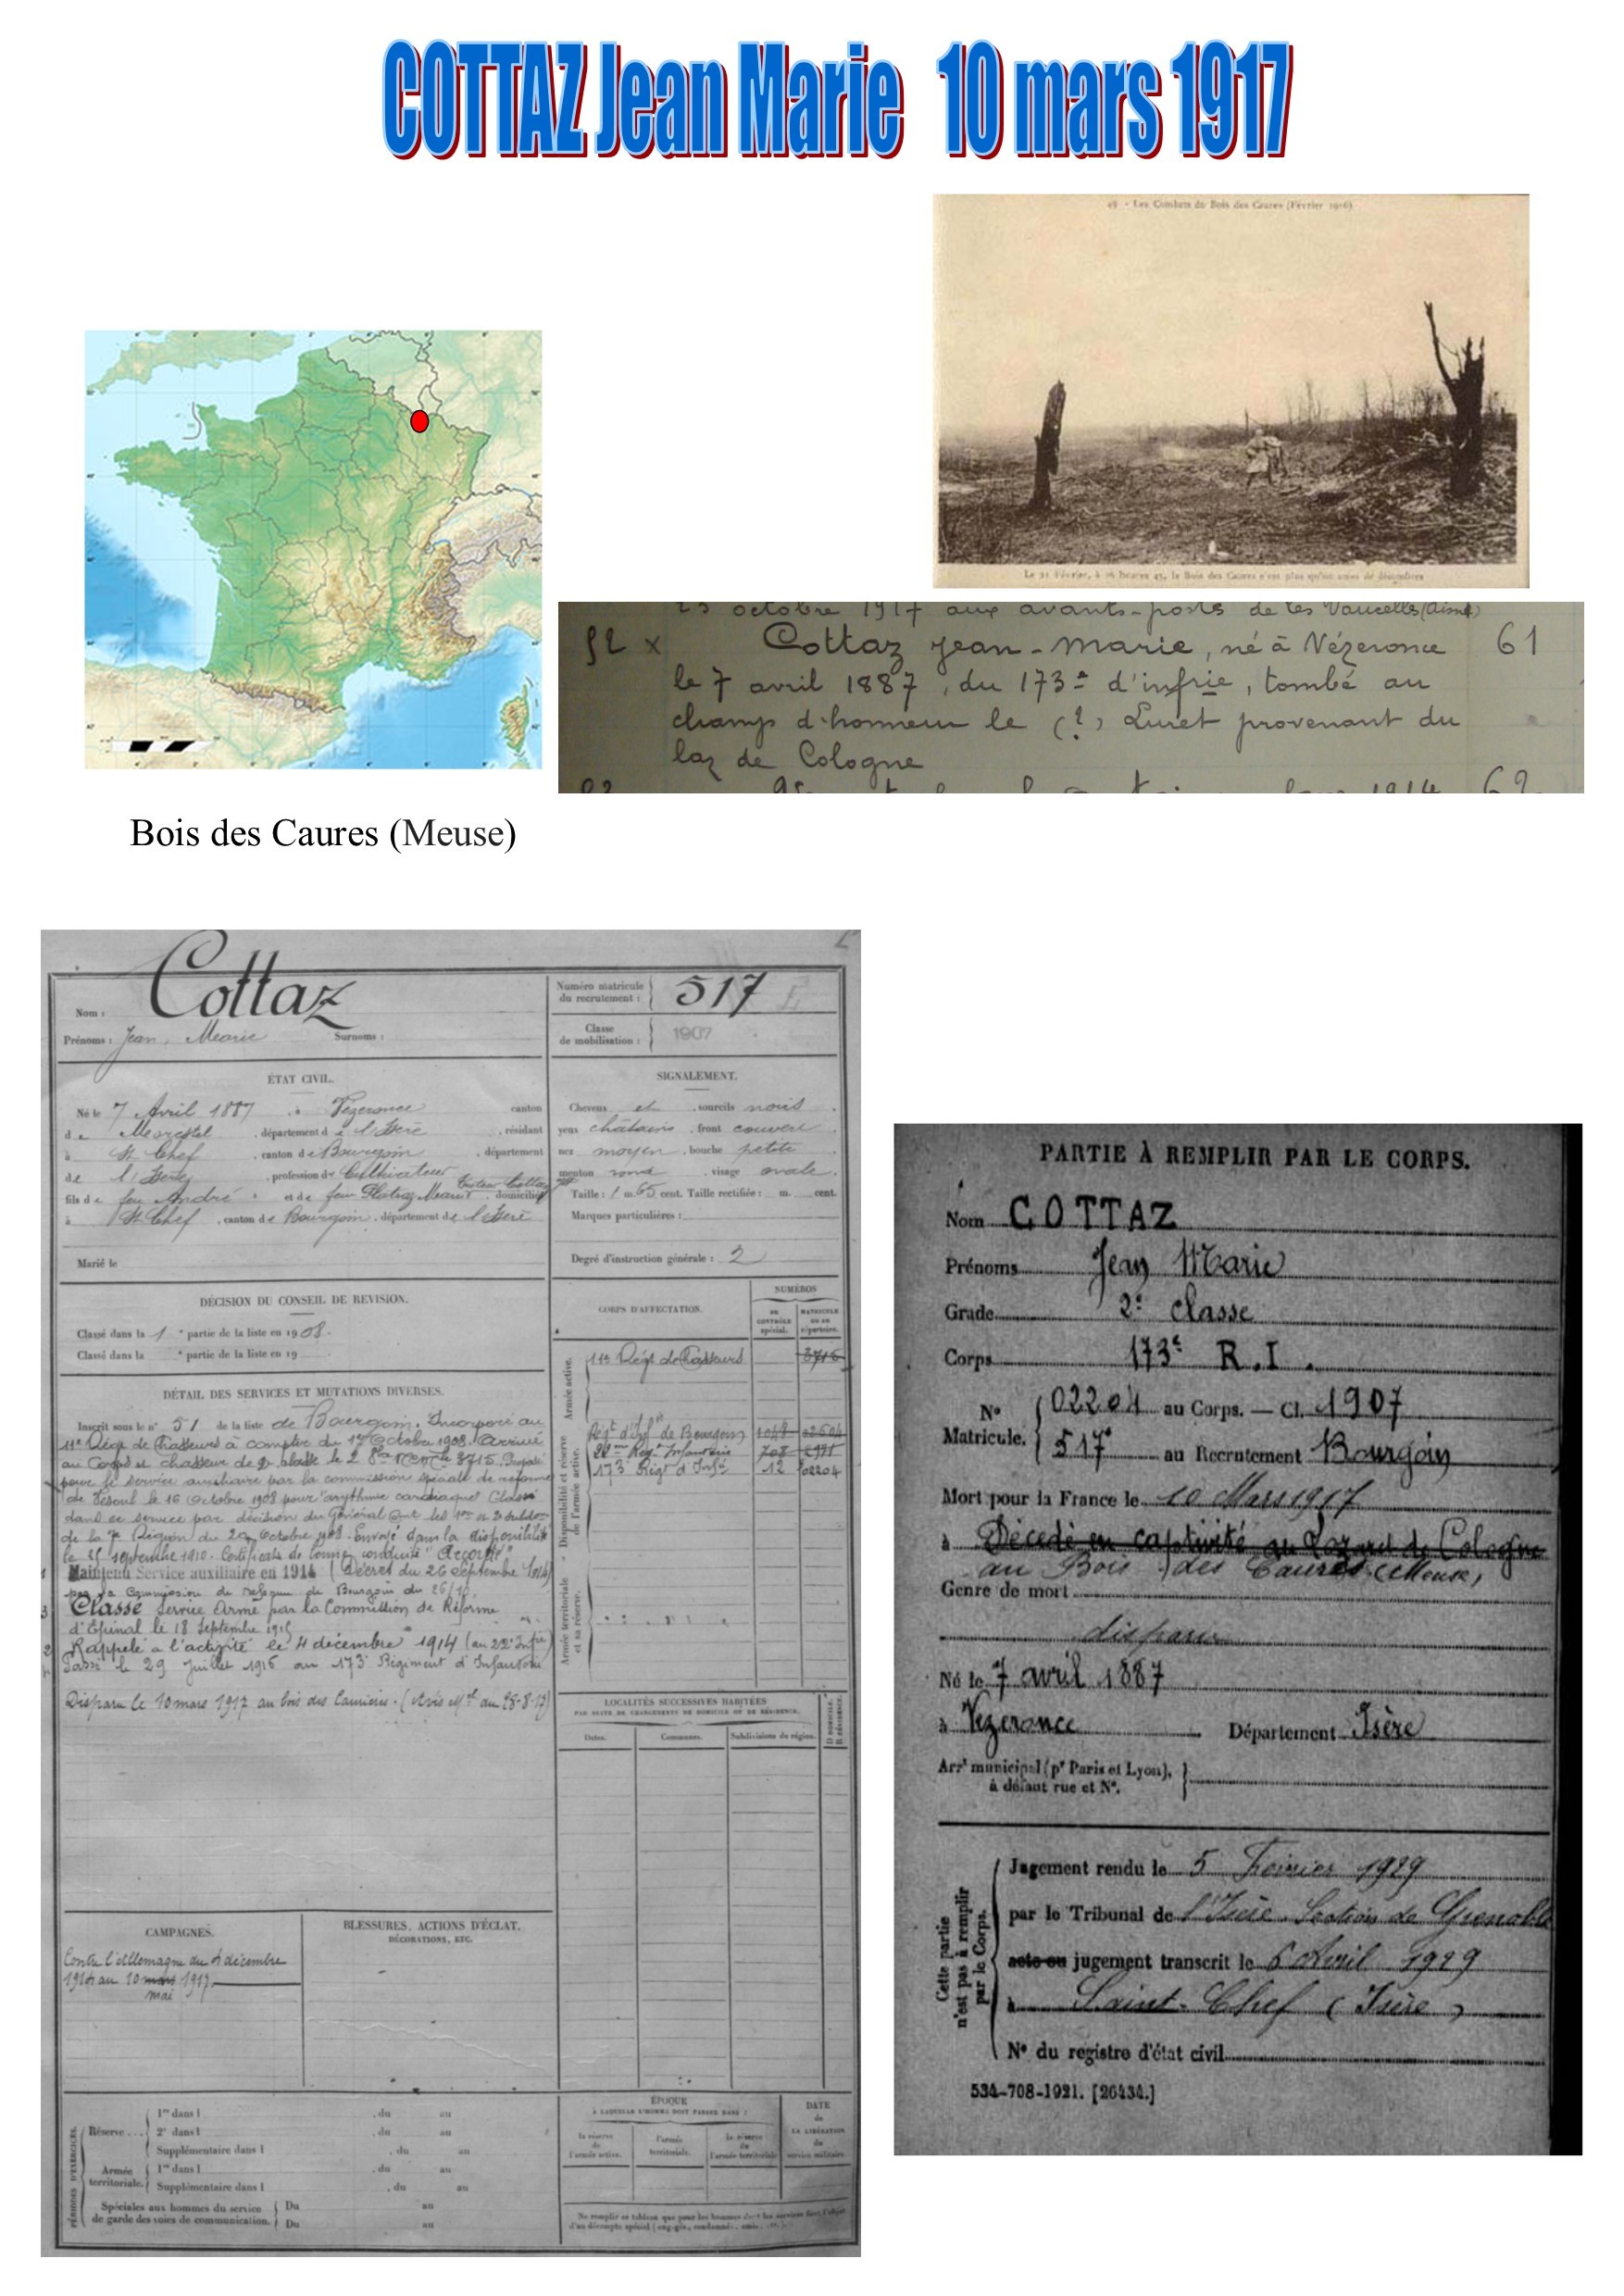 COTTAZ Jean Marie 10 mars 1917
49 - Les Combats du Bois des Caures (Février 1916)
Le 21 Février, à 16 heures 45, le Bois des Caures n'est plus qu'un amas de décombres
23 octobre 1917 aux avants-postes de les Vaucelles (Aisne)
52 x Cottaz Jean-Marie, né à Vézeronce 61
le 7 avril 1887, du 173e d'infrie, tombé au
champ d'honneur le (?) Livret provenant du
laz de Cologne
Bois des Caures (Meuse)
Nom : Cottaz
Prénoms : Jean, Marie Surnoms :
Numéro matricule du recrutement : 517
Classe de mobilisation : 1907
ÉTAT CIVIL.
Né le 7 Avril 1887, à Vézeronce canton
de Morestel, département de l'Isère, résidant
à St Chef, canton de Bourgoin, département
de l'Isère, profession de Cultivateur
fils de feu André et de feu Marie domiciliés
à St Chef, canton de Bourgoin, département de l'Isère
Marié le
SIGNALEMENT.
Cheveux et sourcils noirs
yeux châtains, front couvert
nez moyen, bouche petite
menton rond, visage ovale
Taille : 1 m. 65 cent. Taille rectifiée : m. cent.
Marques particulières :
Degré d'instruction générale : 2
DÉCISION DU CONSEIL DE REVISION.
Classé dans la 1e partie de la liste en 1908.
Classé dans la e partie de la liste en 19
CORPS D'AFFECTATION.
NUMÉROS
DE CONTRÔLE spécial.
MATRICULE OU AU répertoire.
Armée active.
11e Régt de Chasseurs 3715
Disponibilité et réserve de l'armée active.
Régt d'Inf de Bourgoin 1048
22me Régt Infanterie 708
173 Régt d'Infie 12 02204
Armée territoriale et sa réserve.
DÉTAIL DES SERVICES ET MUTATIONS DIVERSES.
Inscrit sous le n° 51 de la liste de Bourgoin. Incorporé au
11e Régt de Chasseurs à compter du 1er Octobre 1908. Arrivé
au Corps et chasseur de 2e classe le 3715.
pour le service auxiliaire par la commission spéciale de réforme
de Vesoul le 16 Octobre 1908 pour "arythmie cardiaque" Classé
dans ce service par décision du Général Cmt les 1re et 2e subdons
de la 7e Région du 20 Octobre 1908. Envoyé dans la disponibilité
le 25 septembre 1910. Certificat de bonne conduite "Accordé"
Maintenu Service auxiliaire en 1914 (Décret du 26 Septembre 1914)
par la Commission de Réforme de Bourgoin du 26/10.
Classé Service Armé par la Commission de Réforme
d'Epinal le 18 Septembre 1915
Rappelé à l'activité le 4 décembre 1914 (au 22e Infie)
Passé le 29 Juillet 1916 au 173e Régiment d'Infanterie
Disparu le 10 mars 1917 au bois des Caurières. (Avis du 28-8-19)
LOCALITÉS SUCCESSIVES HABITÉES
PAR SUITE DE CHANGEMENTS DE DOMICILE OU DE RÉSIDENCE.
Dates. Communes. Subdivisions de région. D. DOMICILE. R. RÉSIDENCE.
CAMPAGNES.
Contre l'Allemagne du 4 décembre
1914 au 10 mars 1917.
mai
BLESSURES, ACTIONS D'ÉCLAT, DÉCORATIONS, ETC.
PÉRIODES D'EXERCICES.
Réserve ... 1re dans l , du au
2e dans l , du au
Supplémentaire dans l , du au
Armée territoriale. 1re dans l , du au
Supplémentaire dans l , du au
Spéciales aux hommes du service de garde des voies de communication. Du au
Du au
ÉPOQUE
À LAQUELLE L'HOMME DOIT PASSER DANS :
la réserve de l'armée active.
l'armée territoriale.
la réserve de l'armée territoriale
DATE de LA LIBÉRATION du service militaire.
PARTIE À REMPLIR PAR LE CORPS.
Nom COTTAZ
Prénoms Jean Marie
Grade 2e classe
Corps 173e R.I.
N° Matricule. 02204 au Corps. — Cl. 1907
517 au Recrutement Bourgoin
Mort pour la France le 10 Mars 1917
à Décédé en captivité au Lazaret de Cologne
au Bois des Caures (Meuse)
Genre de mort
disparu
Né le 7 avril 1887
à Vezeronce Département Isère
Arrt municipal (pr Paris et Lyon), à défaut rue et N°.
Cette partie n'est pas à remplir par le Corps.
Jugement rendu le 5 Février 1929
par le Tribunal de l'Isère. Section de Grenoble
acte ou jugement transcrit le 6 Avril 1929
à Saint-Chef (Isère)
N° du registre d'état civil
534-708-1921. [26434.]